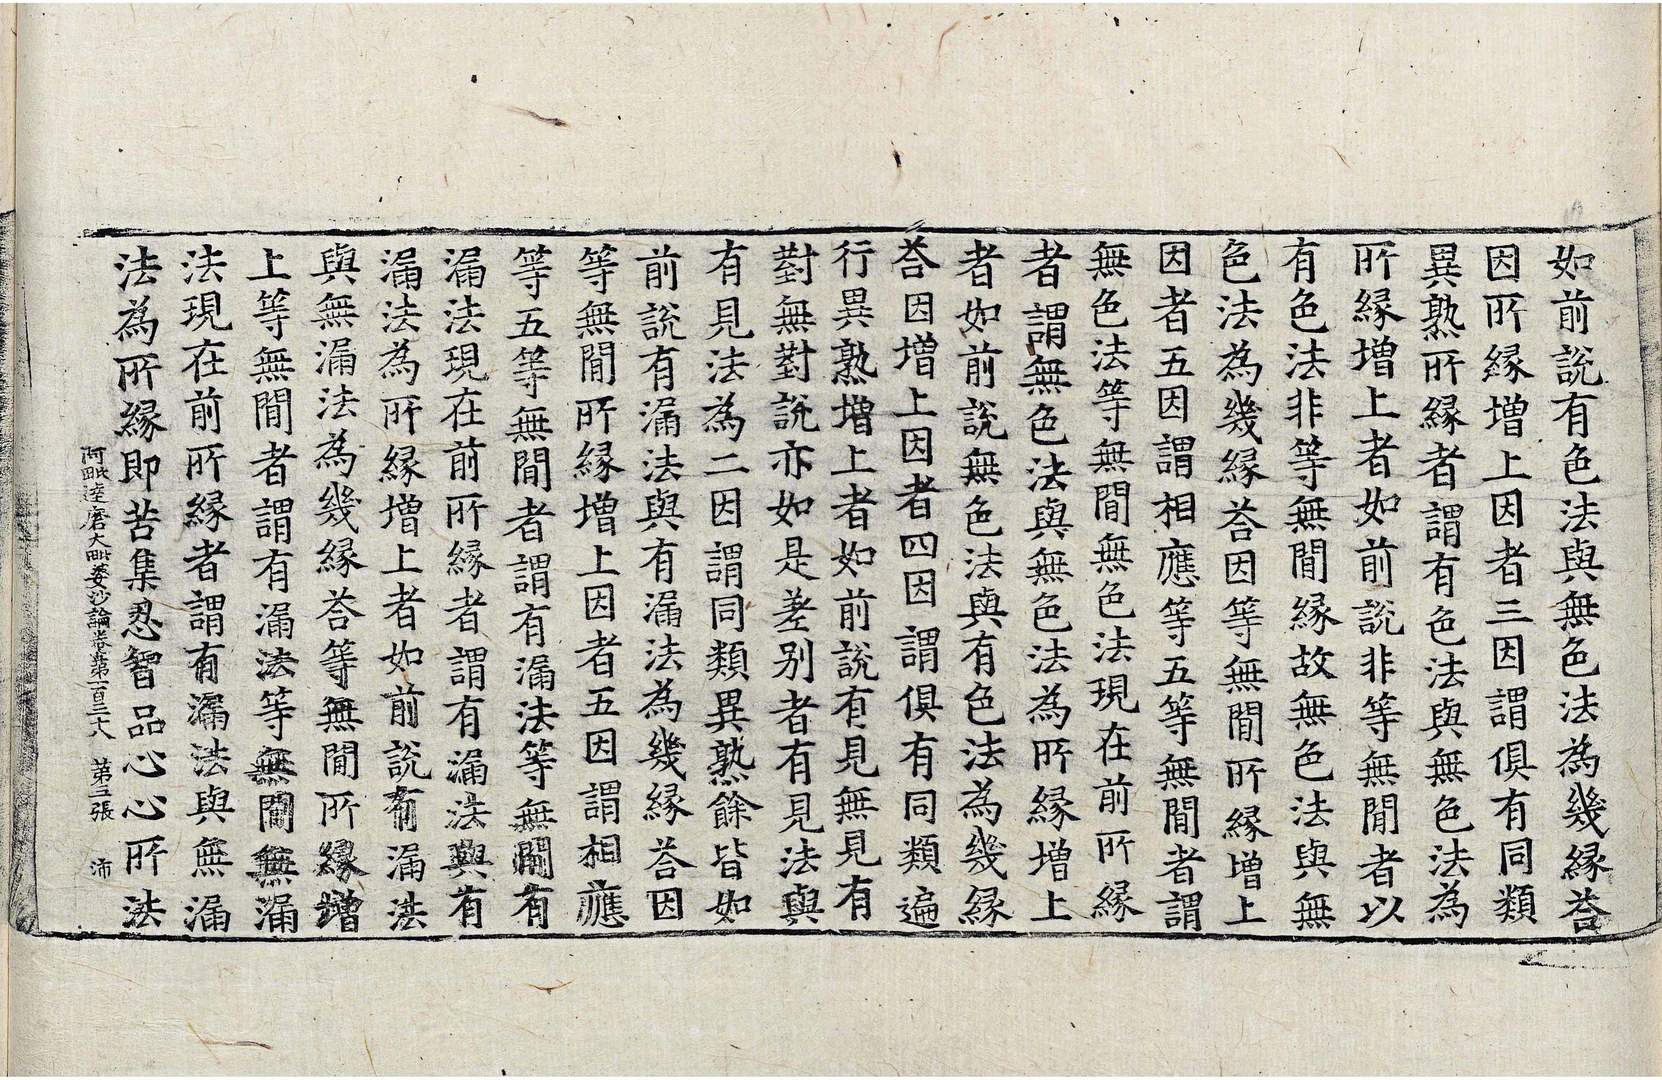 如前說有色法與無色法為幾縁荅
因所縁增上因者三因謂俱有同類
異熟所縁者謂有色法與無色法為
所縁增上者如前說非等無間者以
有色法非等無間縁故無色法與無
色法為幾縁荅因等無間所縁增上
因者五因謂相應等五等無間者謂
無色法等無間無色法現在前所縁
者謂無色法與無色法為所縁增上
者如前說無色法與有色法為幾縁
荅因增上因者四因謂俱有同類遍
行異熟增上者如前說有見無見有
對無對說亦如是差别者有見法與
有見法為二因謂同類異熟餘皆如
前說有漏法與有漏法為幾縁荅因
等無間所縁增上因者五因謂相應
等五等無間者謂有漏法等無間有
漏法現在前所縁者謂有漏法與有
漏法為所縁增上者如前說有漏法
與無漏法為幾縁荅等無間所縁增
上等無間者謂有漏法等無間無漏
法現在前所縁者謂有漏法與無漏
法為所縁即苦集忍智品心心所法
阿毗達磨大毗婆沙論卷第一百三十六 第三張 沛